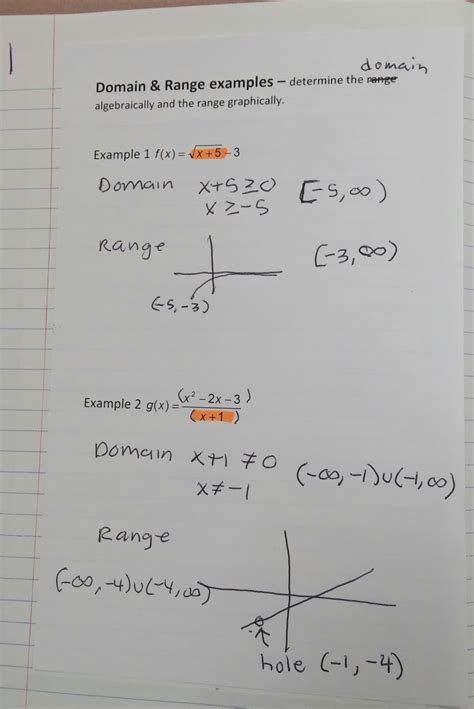 domain
Domain & Range examples – determine the range
algebraically and the range graphically.
Example 1 f(x) = √x+5 - 3
Domain x+5≥0 [-5, ∞)
x ≥ -5
Range [-3, ∞)
(-5, -3)
Example 2 g(x) = (x² - 2x - 3) / (x+1)
Domain x+1 ≠ 0 (-∞, -1)∪(-1, ∞)
x ≠ -1
Range
(-∞, -4)∪(-4, ∞)
hole (-1, -4)